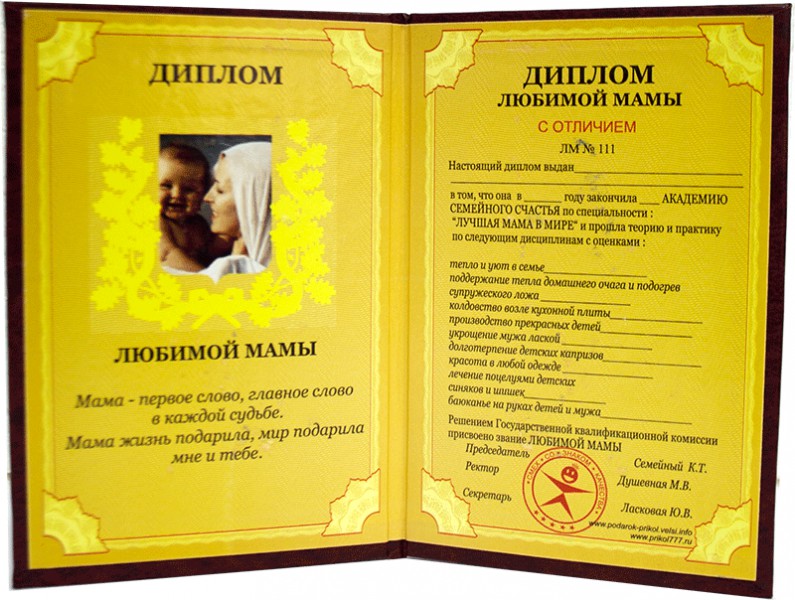 ДИПЛОМ
ЛЮБИМОЙ МАМЫ
Мама - первое слово, главное слово
в каждой судьбе.
Мама жизнь подарила, мир подарила
мне и тебе.
ДИПЛОМ
ЛЮБИМОЙ МАМЫ
С ОТЛИЧИЕМ
ЛМ № 111
Настоящий диплом выдан
в том, что она в ______ году закончила ___ АКАДЕМИЮ
СЕМЕЙНОГО СЧАСТЬЯ по специальности :
"ЛУЧШАЯ МАМА В МИРЕ" и прошла теорию и практику
по следующим дисциплинам с оценками :
тепло и уют в семье
поддержание тепла домашнего очага и подогрев
супружеского ложа
колдовство возле кухонной плиты
производство прекрасных детей
укрощение мужа лаской
долготерпение детских капризов
красота в любой одежде
лечение поцелуями детских
синяков и шишек
баюканье на руках детей и мужа
Решением Государственной квалификационной комиссии
присвоено звание ЛЮБИМОЙ МАМЫ
Председатель Семейный К.Т.
Ректор Душевная М.В.
Секретарь Ласковая Ю.В.
СМЕХ СО ЗНАКОМ КАЧЕСТВА
www.podarok-prikol.velsi.info
www.prikol777.ru